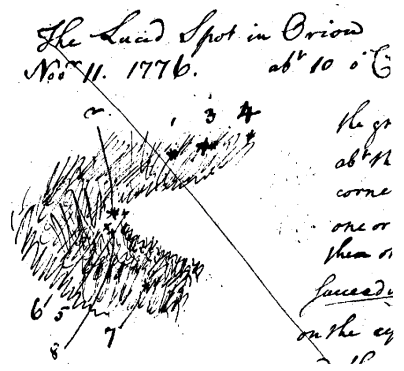 The Lucid Spot in Orion
Nov 11. 1776. abt 10 o'C
2 1 3 4
the gr
abt th
corne
one or
them on
6 5
8 7
on the ey